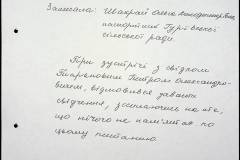 Записала: Швахрай Олена Володимирівна,
паспортист Гур'ївської
сільської ради.
При зустрічі з свідком
Тарановим Петром Олександро-
вичем, відмовився давати
свідчення, посилаючись на те,
що нічого не пам'ятає по
цьому питанню.